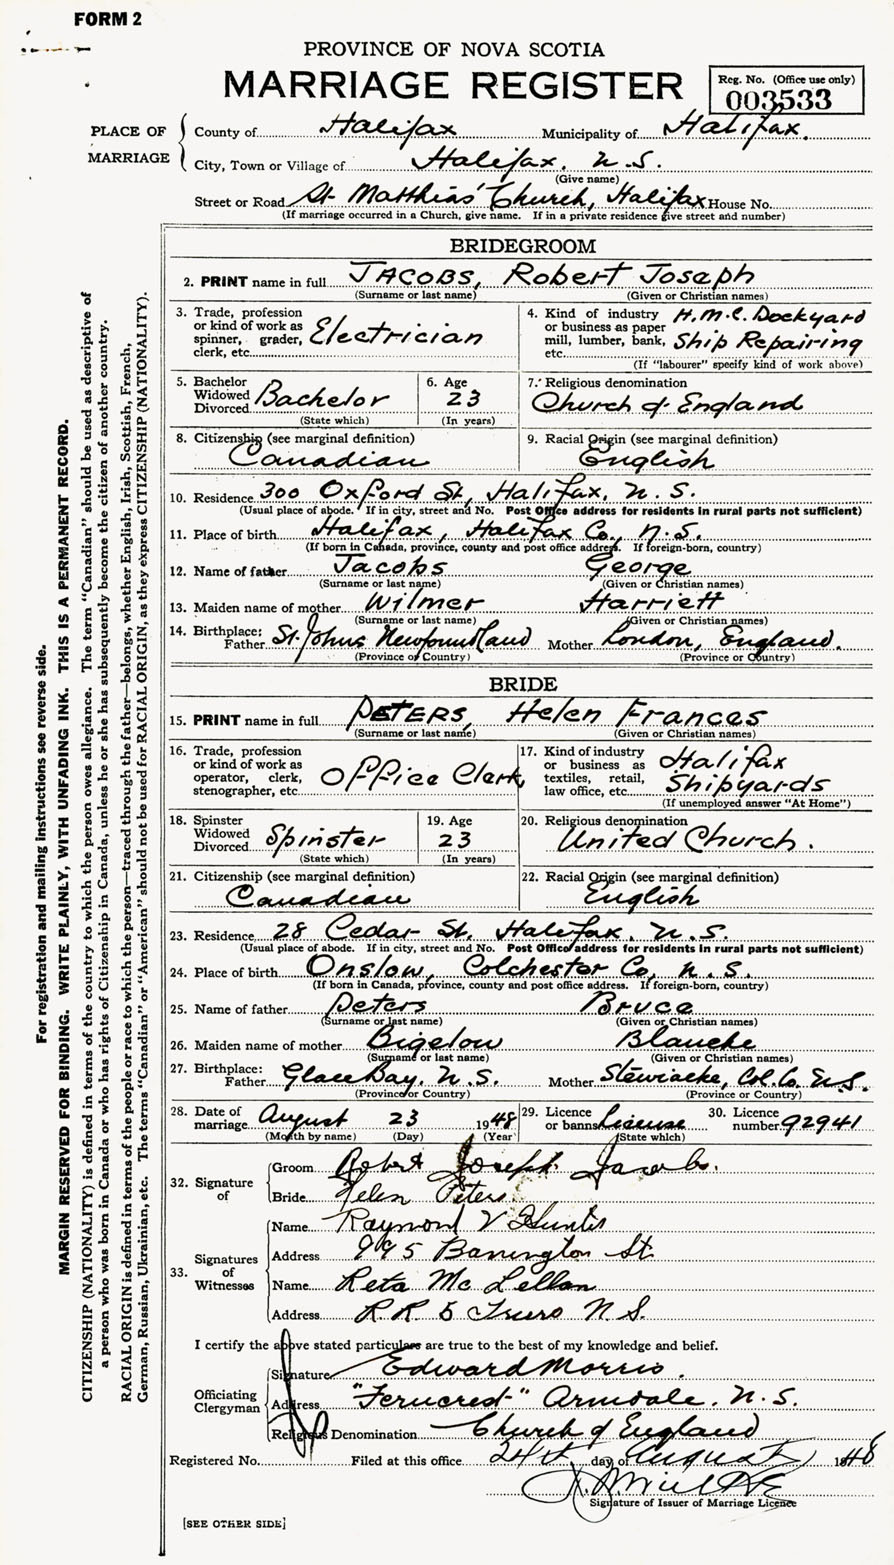 FORM 2
PROVINCE OF NOVA SCOTIA
MARRIAGE REGISTER
Reg. No. (Office use only)
003533
PLACE OF MARRIAGE
County of Halifax Municipality of Halifax.
City, Town or Village of Halifax, N.S.
(Give name)
Street or Road St. Matthias' Church, Halifax House No.
(If marriage occurred in a Church, give name. If in a private residence give street and number)
BRIDEGROOM
2. PRINT name in full JACOBS, Robert Joseph
(Surname or last name) (Given or Christian names)
3. Trade, profession or kind of work as spinner, grader, clerk, etc. Electrician
4. Kind of industry or business as paper mill, lumber, bank, etc. H.M.C. Dockyard Ship Repairing
(If "labourer" specify kind of work above)
5. Bachelor Widowed Divorced Bachelor
(State which)
6. Age 23
(In years)
7. Religious denomination
Church of England
8. Citizenship (see marginal definition)
Canadian
9. Racial Origin (see marginal definition)
English
10. Residence 300 Oxford St, Halifax, N.S.
(Usual place of abode. If in city, street and No. Post Office address for residents in rural parts not sufficient)
11. Place of birth Halifax, Halifax Co., N.S.
(If born in Canada, province, county and post office address. If foreign-born, country)
12. Name of father Jacobs George
(Surname or last name) (Given or Christian names)
13. Maiden name of mother Wilmer Harriett
(Surname or last name) (Given or Christian names)
14. Birthplace: Father St. Johns Newfoundland Mother London, England.
(Province or Country) (Province or Country)
BRIDE
15. PRINT name in full PETERS, Helen Frances
(Surname or last name) (Given or Christian names)
16. Trade, profession or kind of work as operator, clerk, stenographer, etc. Office Clerk
17. Kind of industry or business as textiles, retail, law office, etc. Halifax Shipyards
(If unemployed answer "At Home")
18. Spinster Widowed Divorced Spinster
(State which)
19. Age 23
(In years)
20. Religious denomination
United Church.
21. Citizenship (see marginal definition)
Canadian
22. Racial Origin (see marginal definition)
English
23. Residence 28 Cedar St. Halifax, N.S.
(Usual place of abode. If in city, street and No. Post Office address for residents in rural parts not sufficient)
24. Place of birth Onslow, Colchester Co, N.S.
(If born in Canada, province, county and post office address. If foreign-born, country)
25. Name of father Peters Bruce
(Surname or last name) (Given or Christian names)
26. Maiden name of mother Bigelow Blanche
(Surname or last name) (Given or Christian names)
27. Birthplace: Father Glace Bay, N.S. Mother Stewiacke, Col. Co. N.S.
(Province or Country) (Province or Country)
28. Date of marriage August 23 1948
(Month by name) (Day) (Year)
29. Licence or banns License
(State which)
30. Licence number 92941
32. Signature of
Groom Robert Joseph Jacobs.
Bride Helen Peters
33. Signatures of Witnesses
Name Raymond V Hunter
Address 995 Barrington St.
Name Reta McLellan
Address R R 5 Truro N.S.
I certify the above stated particulars are true to the best of my knowledge and belief.
Officiating Clergyman
Signature Edward Morris.
Address "Ferncrest" Armdale, N.S.
Religious Denomination Church of England
Registered No. Filed at this office 24th day of August 1948
Signature of Issuer of Marriage Licence
[SEE OTHER SIDE]
For registration and mailing instructions see reverse side.
MARGIN RESERVED FOR BINDING. WRITE PLAINLY, WITH UNFADING INK. THIS IS A PERMANENT RECORD.
CITIZENSHIP (NATIONALITY) is defined in terms of the country to which the person owes allegiance. The term "Canadian" should be used as descriptive of
a person who was born in Canada or who has rights of Citizenship in Canada, unless he or she has subsequently become the citizen of another country.
RACIAL ORIGIN is defined in terms of the people or race to which the person—traced through the father—belongs, whether English, Irish, Scottish, French,
German, Russian, Ukrainian, etc. The terms "Canadian" or "American" should not be used for RACIAL ORIGIN, as they express CITIZENSHIP (NATIONALITY).